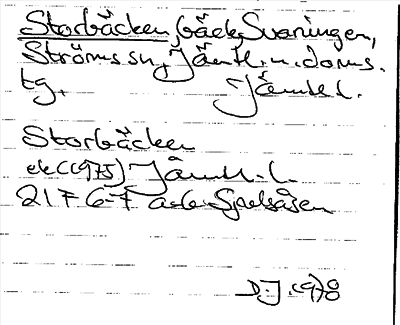 Storbäcken, bäck, Svaningen,
Ströms sn, Jämtl. n. doms.
tg, Jämtl.
Storbäcken
ek (1975) Jämtl. l.
21 F 6-7
D.J. 1978